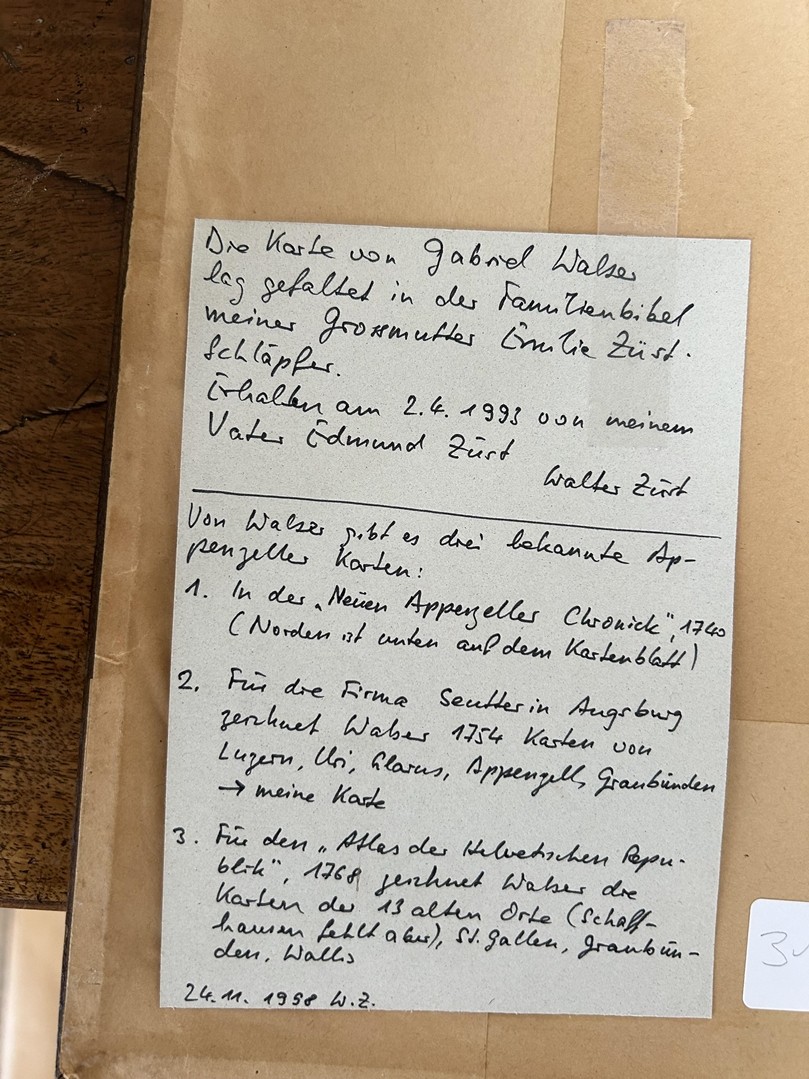 Die Karte von Gabriel Walser
lag gefaltet in der Familienbibel
meiner Grossmutter Emilie Züst-
Schläpfer.
Erhalten am 2.4.1993 von meinem
Vater Edmund Züst
Walter Züst
Von Walser gibt es drei bekannte Ap-
penzeller Karten:
1. In der „Neuen Appenzeller Chronick", 1740
(Norden ist unten auf dem Kartenblatt)
2. Für die Firma Seutter in Augsburg
zeichnet Walser 1754 Karten von
Luzern, Uri, Glarus, Appenzell, Graubünden
→ meine Karte
3. Für den „Atlas der Helvetischen Repu-
blik", 1768 zeichnet Walser die
Karten der 13 alten Orte (Schaff-
hausen fehlt aber), St. Gallen, Graubün-
den, Wallis
24.11.1998 W.Z.